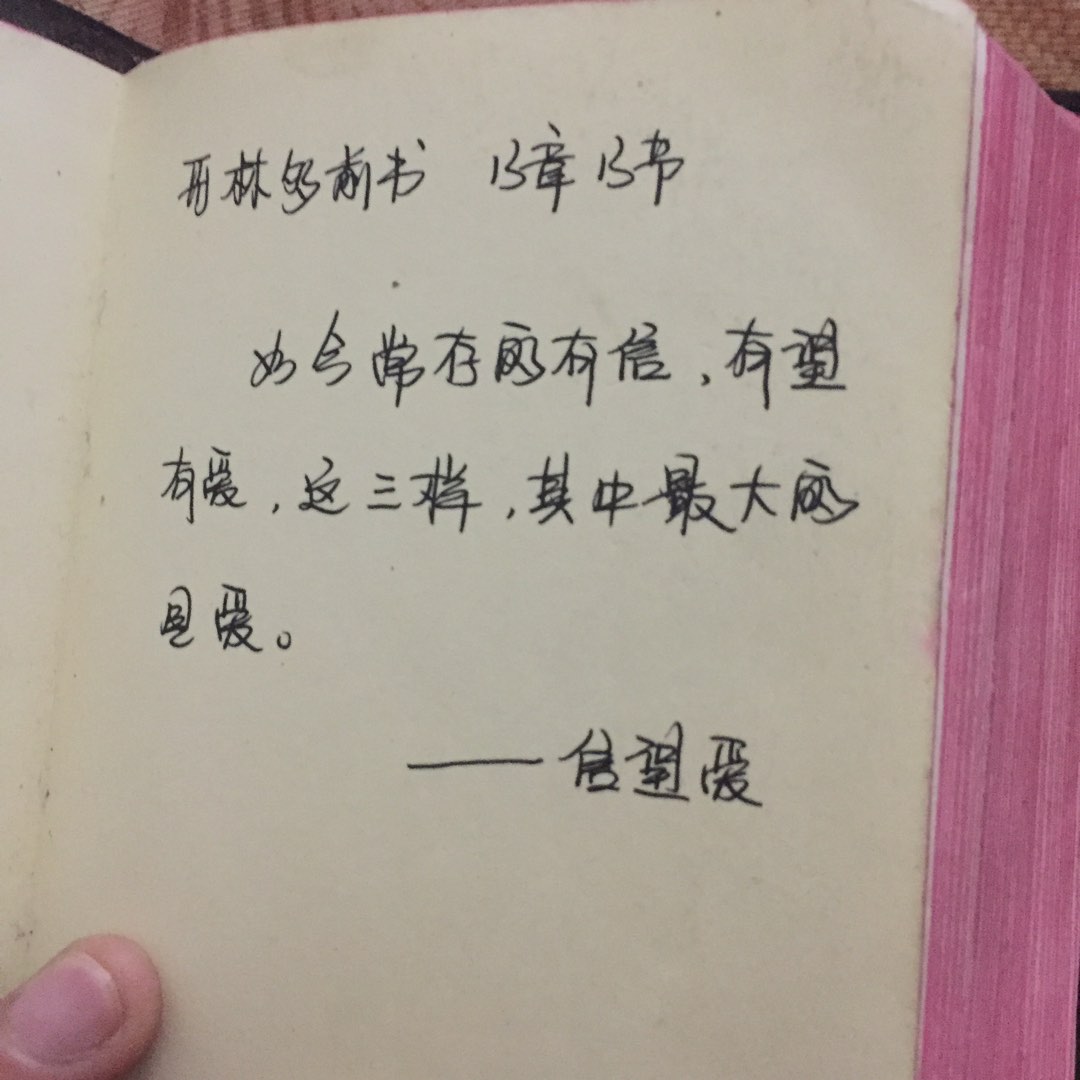 哥林多前书 13章13节
如今常存的有信，有望
有爱，这三样，其中最大的
是爱。
——信望爱